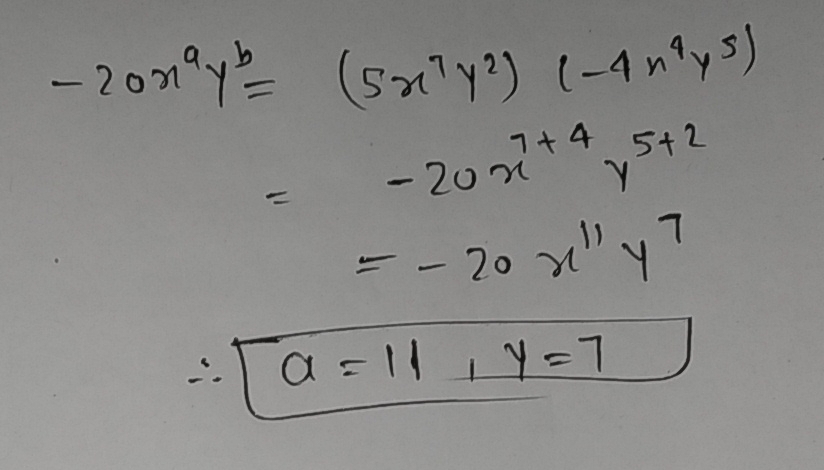 -20x^a y^b = (5x^7 y^2) (-4x^4 y^5)
= -20x^{7+4} y^{5+2}
= -20 x^{11} y^7
∴ a = 11, y = 7